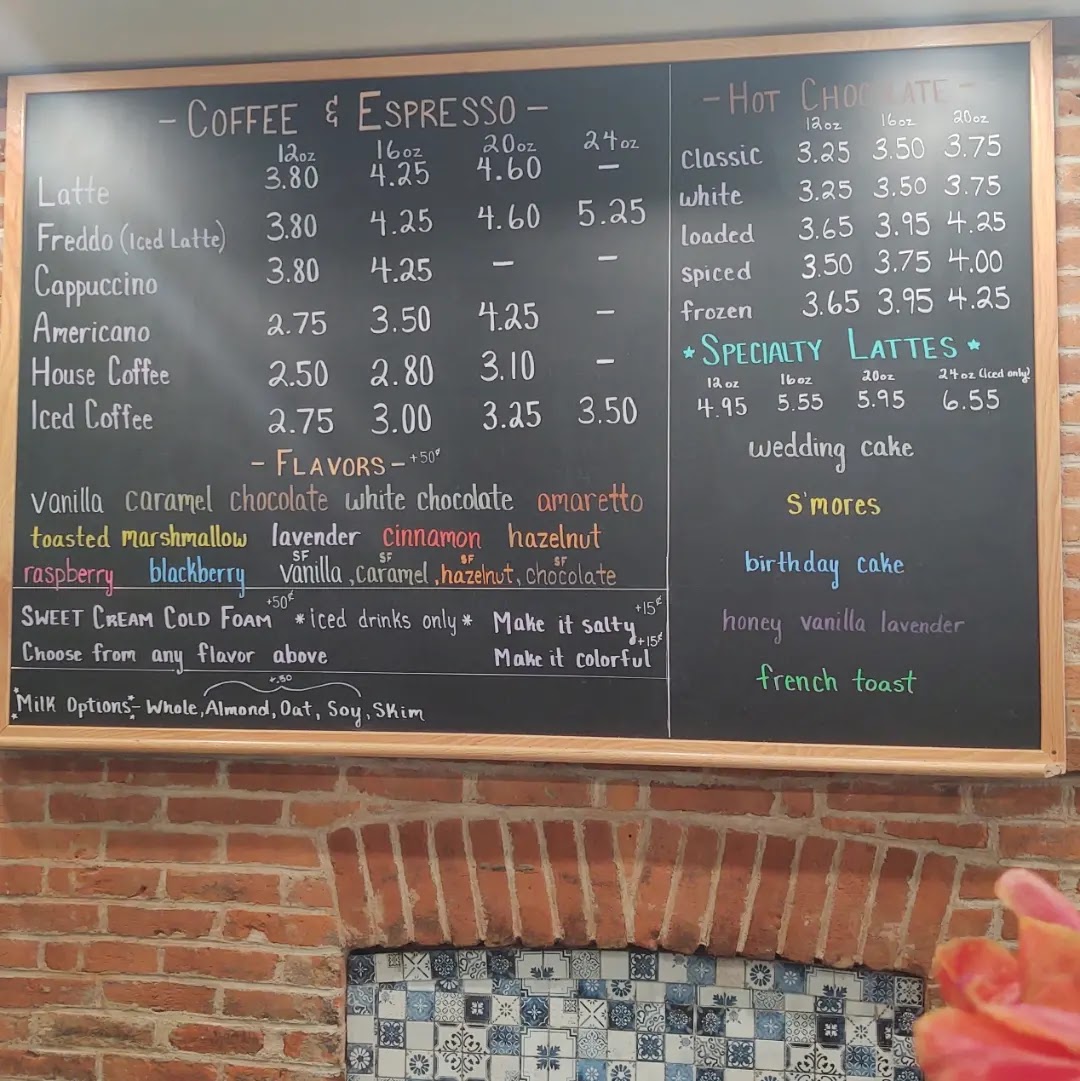 - COFFEE & ESPRESSO -
12oz 16oz 20oz 24oz
Latte 3.80 4.25 4.60 —
Freddo (Iced Latte) 3.80 4.25 4.60 5.25
Cappuccino 3.80 4.25 — —
Americano 2.75 3.50 4.25 —
House Coffee 2.50 2.80 3.10 —
Iced Coffee 2.75 3.00 3.25 3.50
- FLAVORS - +50¢
vanilla caramel chocolate white chocolate amaretto
toasted marshmallow lavender cinnamon hazelnut
raspberry blackberry SF vanilla, SF caramel, SF hazelnut, SF chocolate
SWEET CREAM COLD FOAM +50¢ *iced drinks only*
Choose from any flavor above
Make it salty +15¢
Make it colorful +15¢
+.50
*Milk Options*- Whole, Almond, Oat, Soy, Skim
- HOT CHOCOLATE -
12oz 16oz 20oz
classic 3.25 3.50 3.75
white 3.25 3.50 3.75
loaded 3.65 3.95 4.25
spiced 3.50 3.75 4.00
frozen 3.65 3.95 4.25
* SPECIALTY LATTES *
12oz 16oz 20oz 24oz (iced only)
4.95 5.55 5.95 6.55
wedding cake
s'mores
birthday cake
honey vanilla lavender
french toast